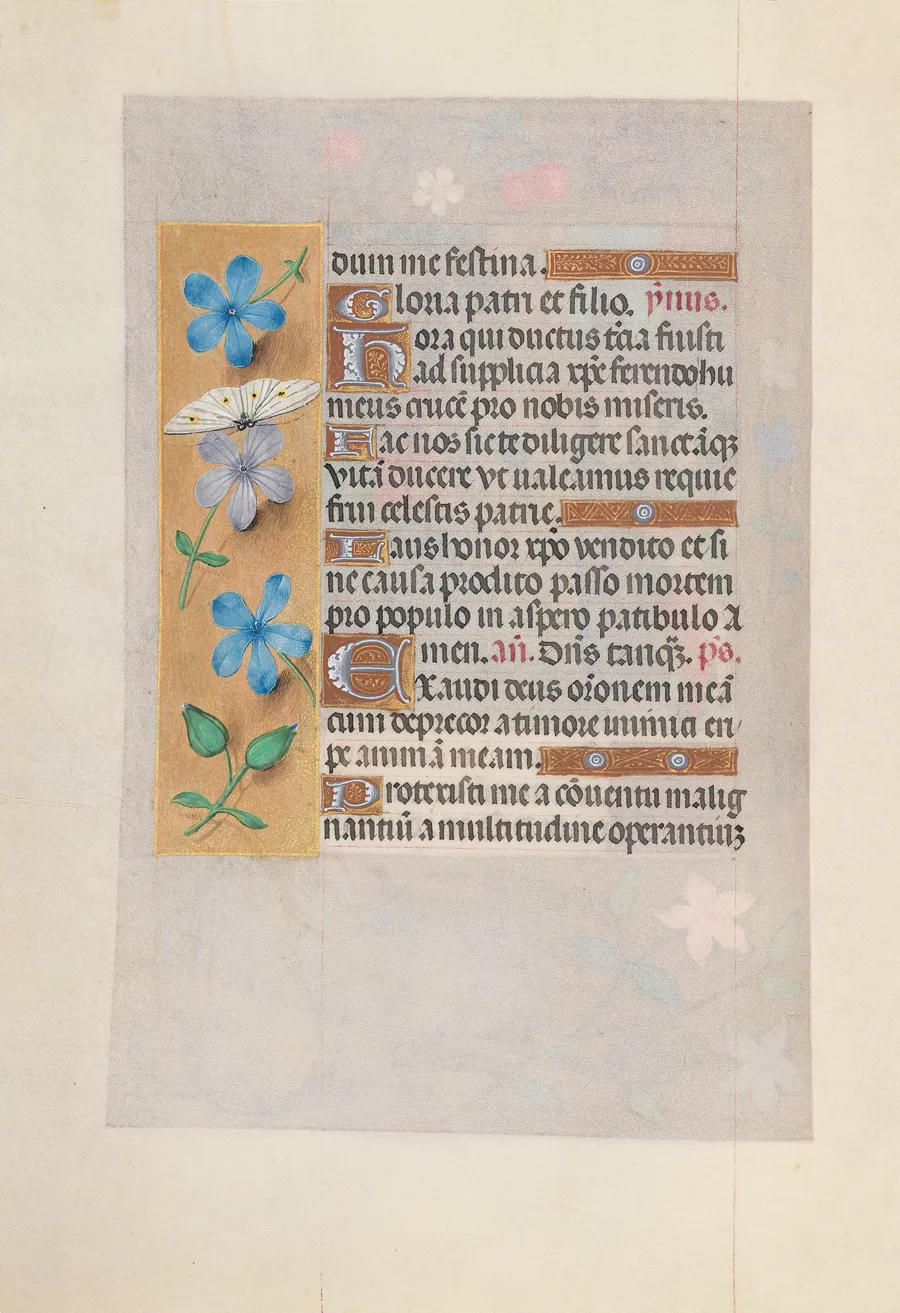 dum me festina.
Gloria patri et filio. ẏmus.
Hora qui ductus tc̄ia fuisti
ad supplicia xp̄e ferendo hu
meus crucē pro nobis miseris.
Fac nos sic te diligere sanctāq̄
vitā ducere vt ualeamus requie
frui celestis patrie.
Laus honor xp̄o vendito et si
ne causa prodito passo mortem
pro populo in aspero patibulo A
men. an̄. Dn̄s tanq̄. ps.
EXaudi deus or̄onem meā
cum deprecor a timore inimici eri
pe animā meam.
Protexisti me a cōuentu malig
nantiū a multitudine operantiuꝫ